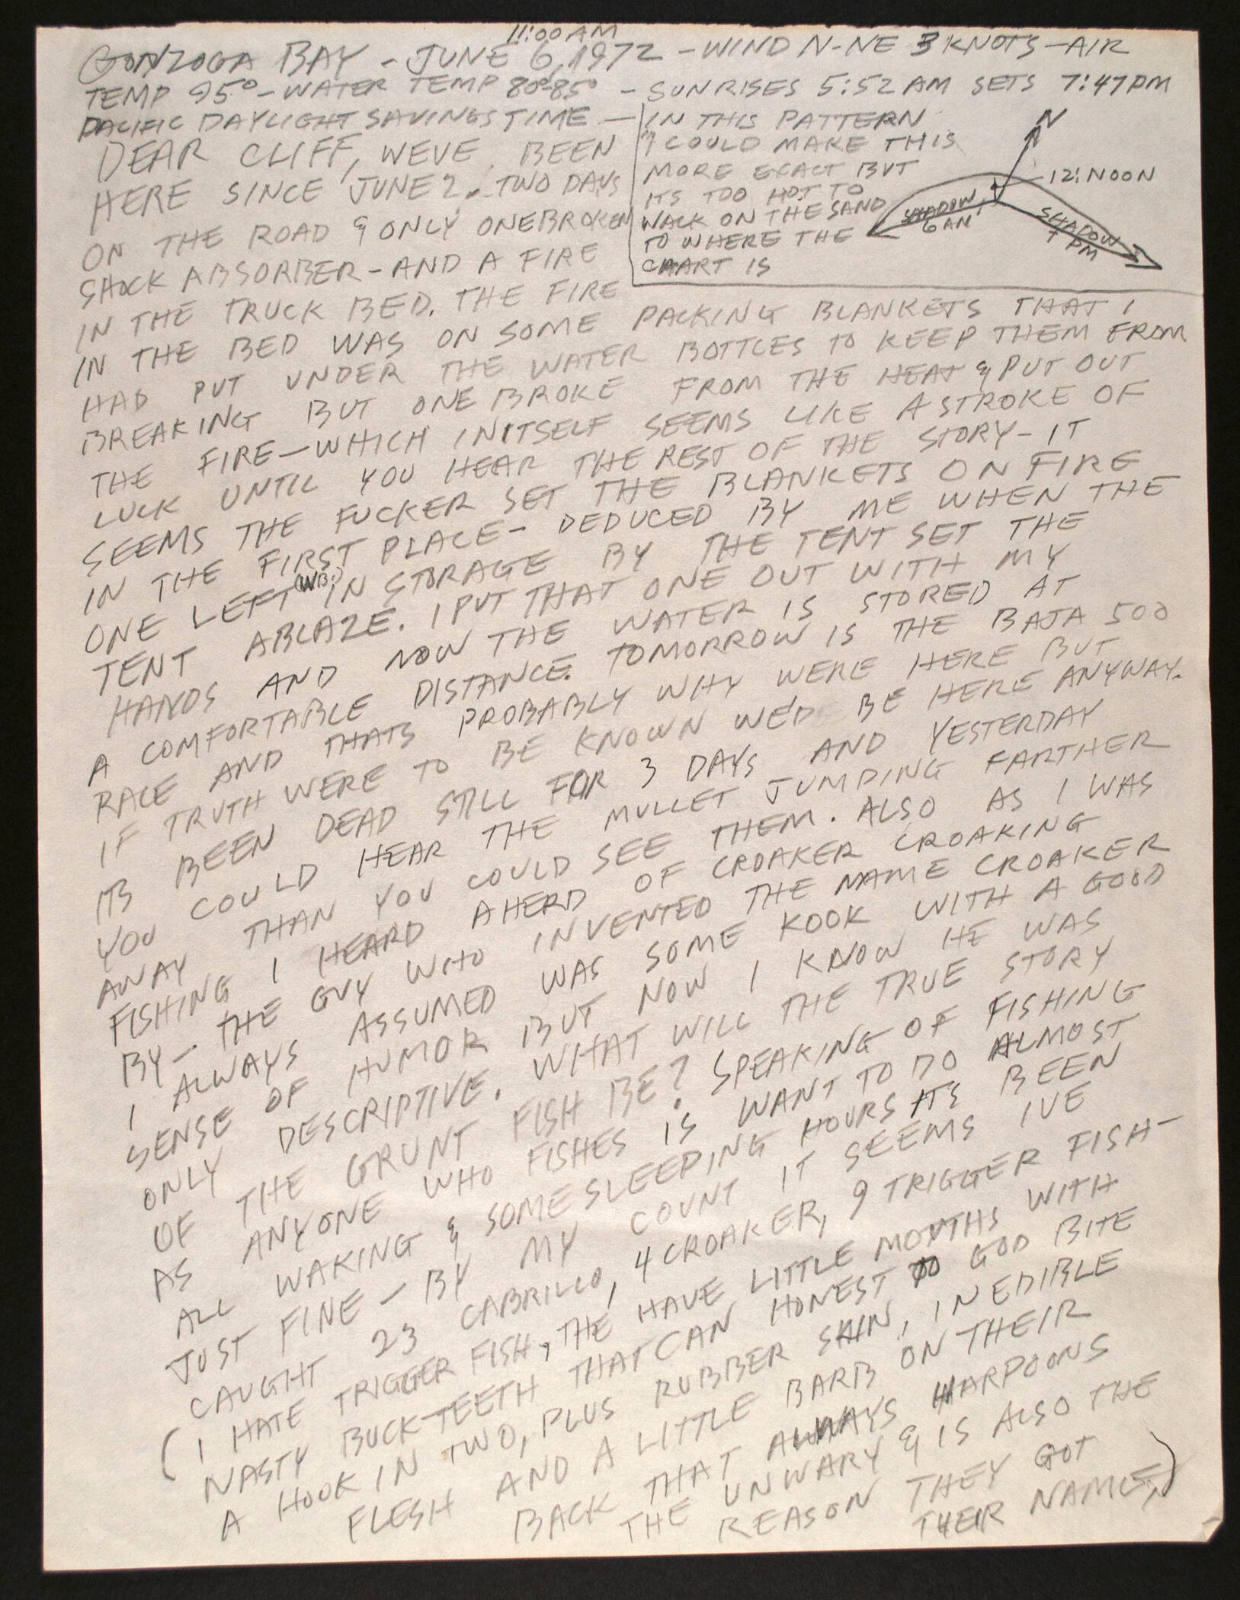 11:00 AM
GONZOGA BAY - JUNE 6, 1972 - WIND N-NE 3 KNOTS - AIR
TEMP 95° - WATER TEMP 80°-85° - SUN RISES 5:52 AM SETS 7:47 PM
PACIFIC DAYLIGHT SAVINGS TIME —
IN THIS PATTERN
I COULD MAKE THIS
MORE EXACT BUT
ITS TOO HOT TO
WALK ON THE SAND
TO WHERE THE
CHART IS
N
12:NOON
SHADOW
6 AM
SHADOW
7 PM
DEAR CLIFF, WEVE BEEN
HERE SINCE JUNE 2. TWO DAYS
ON THE ROAD & ONLY ONE BROKEN
SHOCK ABSORBER - AND A FIRE
IN THE TRUCK BED. THE FIRE
IN THE BED WAS ON SOME PACKING BLANKETS THAT I
HAD PUT UNDER THE WATER BOTTLES TO KEEP THEM FROM
BREAKING BUT ONE BROKE FROM THE HEAT & PUT OUT
THE FIRE — WHICH IN ITSELF SEEMS LIKE A STROKE OF
LUCK UNTIL YOU HEAR THE REST OF THE STORY - IT
SEEMS THE FUCKER SET THE BLANKETS ON FIRE
IN THE FIRST PLACE - DEDUCED BY ME WHEN THE
ONE LEFT (WB.) IN STORAGE BY THE TENT SET THE
TENT ABLAZE. I PUT THAT ONE OUT WITH MY
HANDS AND NOW THE WATER IS STORED AT
A COMFORTABLE DISTANCE. TOMORROW IS THE BAJA 500
RACE AND THATS PROBABLY WHY WERE HERE BUT
IF TRUTH WERE TO BE KNOWN WE'D BE HERE ANYWAY.
ITS BEEN DEAD STILL FOR 3 DAYS AND YESTERDAY
YOU COULD HEAR THE MULLET JUMPING FARTHER
AWAY THAN YOU COULD SEE THEM. ALSO AS I WAS
FISHING I HEARD A HERD OF CROAKER CROAKING
BY - THE GUY WHO INVENTED THE NAME CROAKER
I ALWAYS ASSUMED WAS SOME KOOK WITH A GOOD
SENSE OF HUMOR BUT NOW I KNOW HE WAS
ONLY DESCRIPTIVE. WHAT WILL THE TRUE STORY
OF THE GRUNT FISH BE? SPEAKING OF FISHING
AS ANYONE WHO FISHES IS WANT TO DO ALMOST
ALL WAKING & SOME SLEEPING HOURS ITS BEEN
JUST FINE - BY MY COUNT IT SEEMS IVE
CAUGHT 23 CABRILLO, 4 CROAKER, 9 TRIGGER FISH —
(I HATE TRIGGER FISH, THE HAVE LITTLE MOUTHS WITH
NASTY BUCK-TEETH THAT CAN HONEST TO GOD BITE
A HOOK IN TWO, PLUS RUBBER SKIN, INEDIBLE
FLESH AND A LITTLE BARB ON THEIR
BACK THAT ALWAYS HARPOONS
THE UNWARY & IS ALSO THE
REASON THEY GOT
THEIR NAME,)